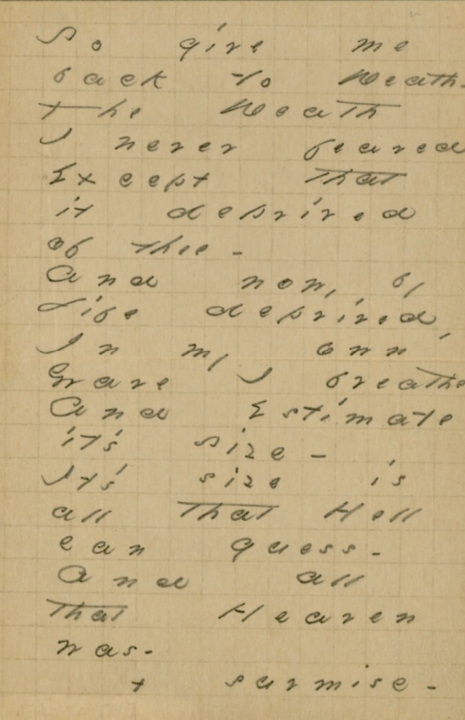 So give me
back to Death -
The Death
I never feared
Except that
it deprived
of thee -
And now, by
Life deprived,
In my own
Grave I breathe
And Estimate
it's size -
It's size is
all that Hell
can guess -
And all
that Heaven
was -
+ surmise -